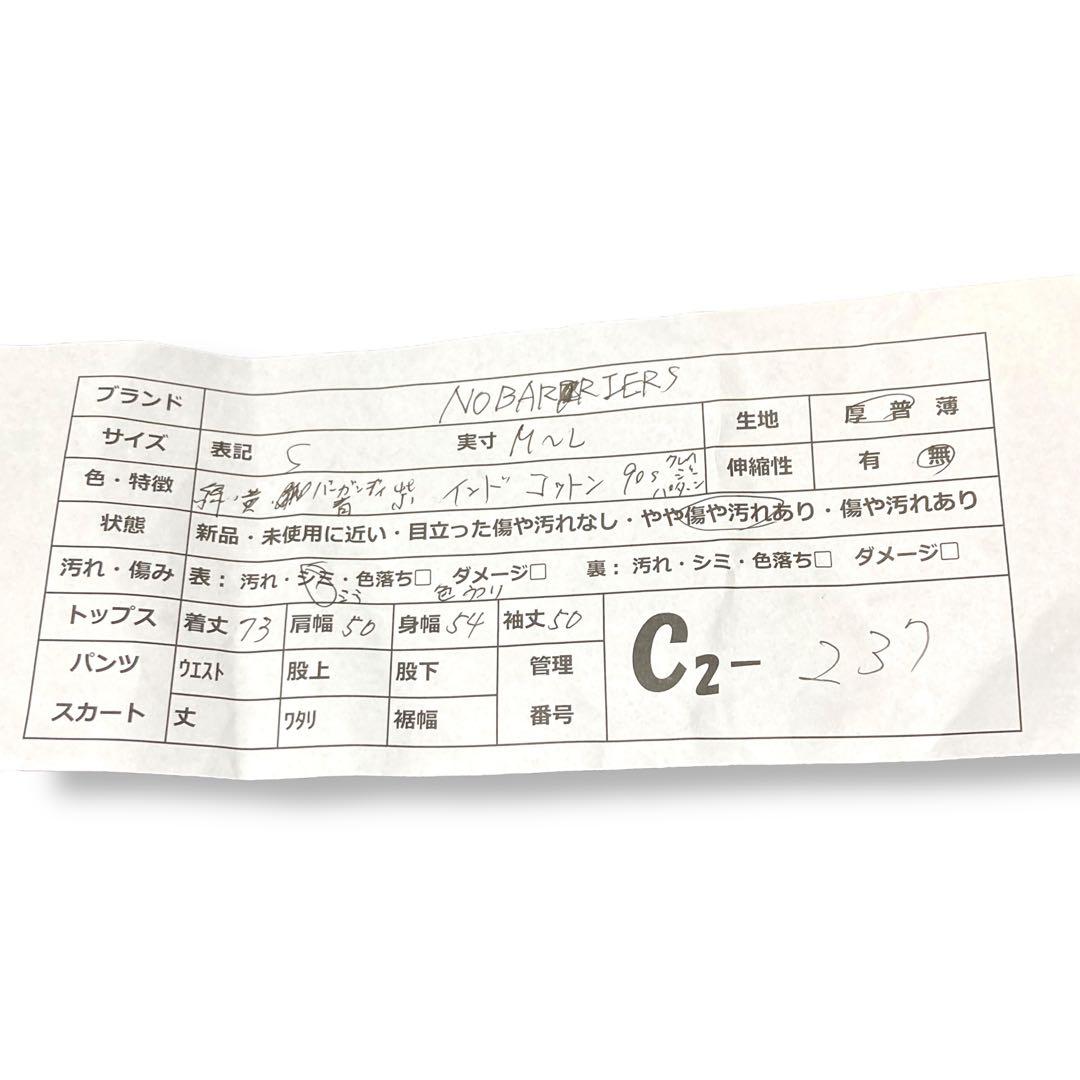 ブランド NOBARRIERS
サイズ 表記 S 実寸 M〜L 生地 厚 普 薄
色・特徴 緑・黄・バーガンディ 青 紫 インド コットン 90s クレイジーパターン 伸縮性 有 無
状態 新品・未使用に近い・目立った傷や汚れなし・やや傷や汚れあり・傷や汚れあり
汚れ・傷み 表：汚れ・シミ・色落ち□ ダメージ□ 裏：汚れ・シミ・色落ち□ ダメージ□
色ウツリ
トップス 着丈 73 肩幅 50 身幅 54 袖丈 50
パンツ ウエスト 股上 股下 管理
スカート 丈 ワタリ 裾幅 番号
C2− 237